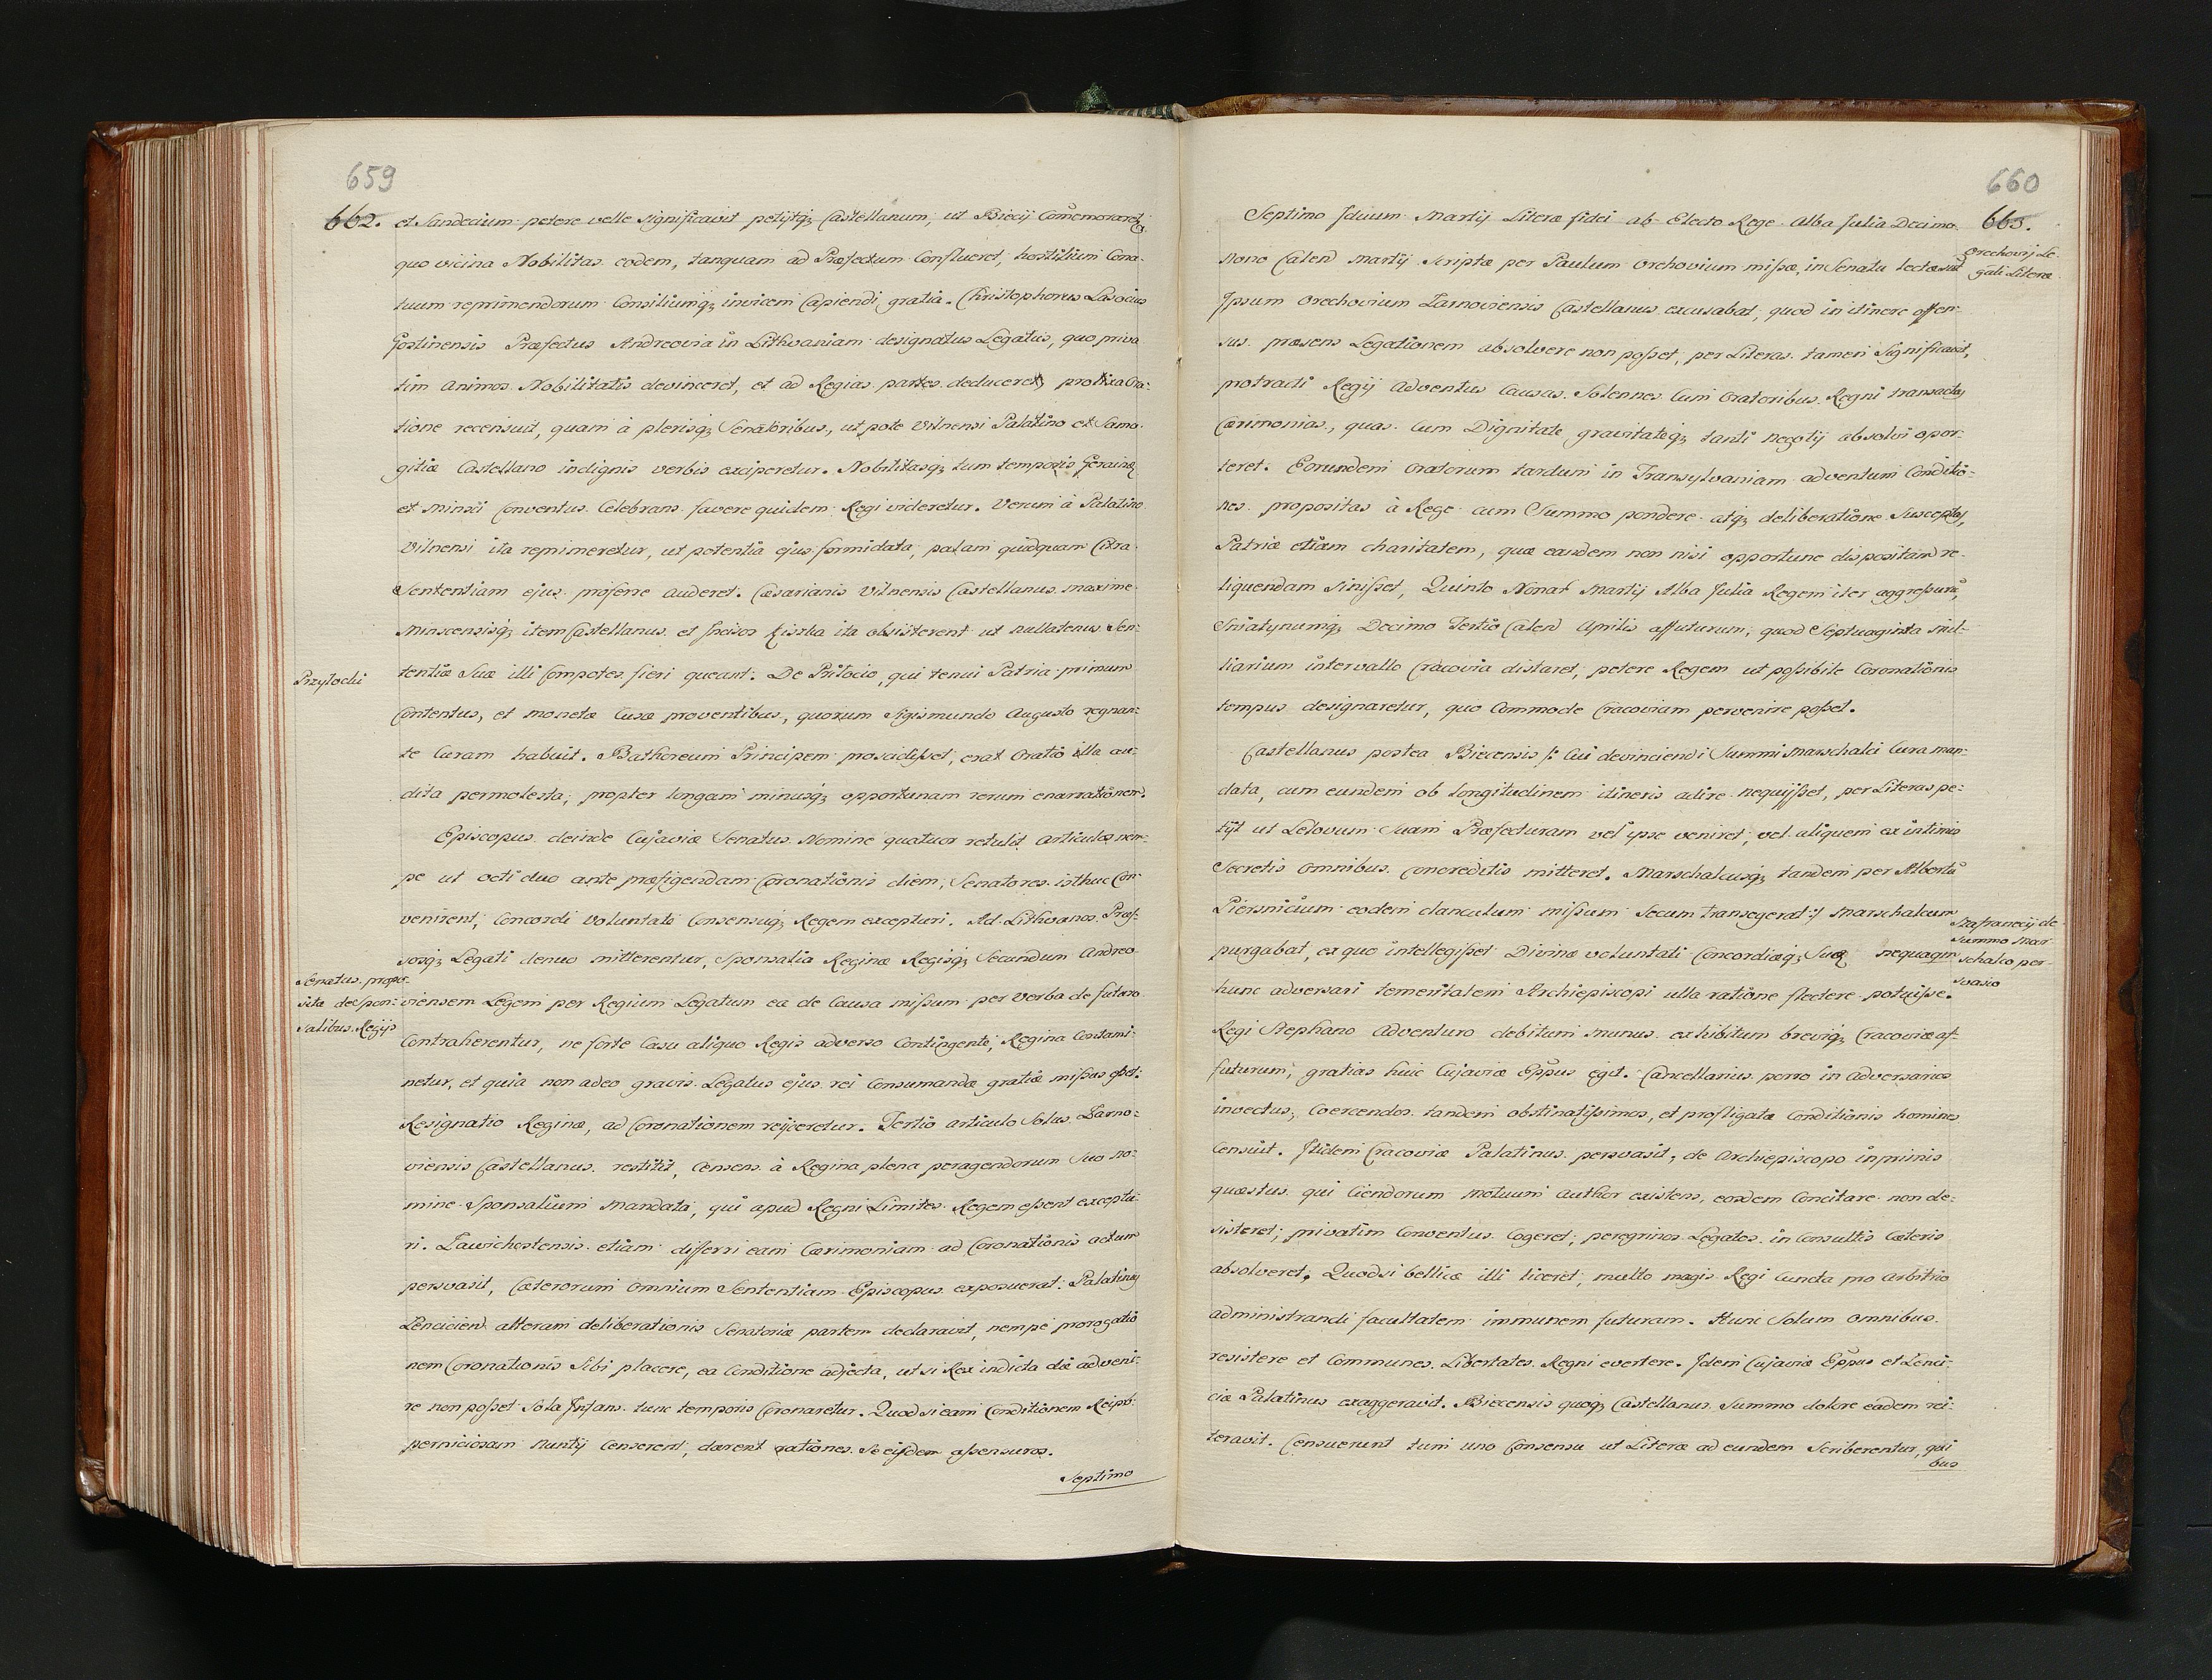 659
662.
et Sandecium petere velle significavit petijtq; Castellanum, ut Biecij Com̄emoraretr,
quo vicina Nobilitas eodem, tanquam ad Profectum Conflueret, hostilium Cona-
tuum reprimendorum Consiliumq; invicem Capiendi gratia. Christophorus Lasocius
Gostinensis Præfectus Andreovia in Lithvaniam designatus Legatus, quo priva
tim animos Nobilitatis devinceret, et ad Regias partes deduceret, prolixa Ora-
tione recensuit, quam à plerisq; Senatoribus, ut pote Vilnensi Palatino et Samo-
gitiæ Castellano indignis verbis exciperetur. Nobilitasq; tum temporis Geraine
et Minscij Conventus Celebrans favere quidem Regi videretur. Verum à Palatino
Vilnensi ita reprimeretur, ut potentia ejus formidata, palam quidquam Citra
Sententiam ejus proferre auderet. Cæsarianis Vilnensis Castellanus maxime
Minscensisq; item Castellanus et Incisor Kiszka ita obsisterent ut nullatenus Sen-
Przylocki
tentiæ Suæ illi Compotes fieri queant. De Prilocio, qui tenui Patria primum
Contentus, et monetæ Cusæ proventibus, quorum Sigismundo Augusto regnan-
te Curam habuit. Bathoreum Principem proscidisset, erat Oratio illa au-
dita permolesta, propter longam minusq; opportunam rerum enarrationem.
Episcopus deinde Cujaviæ Senatus Nomine quatuor retulit articulos nem-
pe ut octiduo ante præfigendam Coronationis diem, Senatores isthuc Con-
venirent, Concordi voluntate Consensuq; Regem excepturi. Ad Lithvanos Prus-
sosq; Legati denuo mitterentur, Sponsalia Reginæ Regisq; Secundum Andreo
Senatus propo-
sita de spon-
salibus Regijs
viensem Legem per Regium Legatum ea de Causa missum per Verba de futuro
Contraherentur, ne forte Casu aliquo Regis adverso Contingente, Regina Contami-
netur, et quia non adeo gravis Legatus ejus rei Consumandæ gratiæ missus esset:
Resignatio Reginæ, ad Coronationem reijceretur. Tertio articulo Solus Tarno-
viensis Castellanus restitit, Censens à Regina plena peragendorum Suo no-
mine Sponsalium Mandata, qui apud Regni Limites Regem essent exceptu-
ri. Zawichostensis etiam differri eam Cærimoniam ad Coronationis actum
persvasit, Cæterorum omnium Sententiam Episcopus exposuerat. Palatinus
Lenciciens alteram deliberationis Senatoriæ partem declaravit, nempe prorogatio
nem Coronationis Sibi placere, ea Conditione adjecta, ut si Rex indicta die adveni-
re non posset Sola Infans tunc temporis Coronaretur. Quod si eam Conditionem Reipb:
perniciosam Nuntij Censerent, darent rationes Se eisdem assensuros.
Septimo
660
663.
Septimo Iduum Martij Literæ fidei ab Electo Rege Alba Julia Decimo
Orechovij Le-
gati Literæ
nono Calend Martij Scriptæ per Paulum Orchovium missæ, in Senatu lectæ sunt
Ipsum Orechovium Tarnoviensis Castellanus excusabat, quod in itinere offen-
sus præsens Legationem absolvere non posset, per Literas tamen Significavit,
protracti Regij adventus Causas Solennes Cum Oratoribus Regni transactas
Cærimonias, quas Cum Dignitate gravitateq; tanti negotij absolvi opor-
teret. Eorundem Oratorum tardum in Transylvaniam adventum Conditio-
nes propositas à Rege cum Summo pondere atq; deliberatione Susceptas,
Patriæ etiam charitatem, quæ eandem non nisi opportune dispositam re-
liquendam Sinisset, Quinto Nonar Martij Alba Julia Regem iter aggressurū,
Sniatynumq; Decimo Tertio Calend Aprilis affuturum, quod Septuaginta Mil-
liarium intervallo Cracovia distaret, petere Regem ut possibile Coronationis
tempus designaretur, quo Commode Cracoviam pervenire posset.
Castellanus postea Biecensis /: Cui devinciendi Summi Marschalci Cura man-
data, cum eundem ob longitudinem itineris adire nequijsset, per Literas pe-
tijt ut Lelovum Suam Præfecturam vel ipse veniret, vel aliquem ex intimis
Secretis omnibus concreditis mitteret. Marschalcusq; tandem per Albertū
Piersnicium eodem clanculum missum Secum transegerat :/ Marschalcum
Szafranecij de
Summo Mar-
schalco per-
svasio
purgabat, ex quo intellegisset Divinæ voluntati Concordiæq; Suæ nequaqm
hunc adversari temeritatem Archiepiscopi ulla ratione flectere potuisse.
Regi Stephano adventuro debitum munus exhibitum breviq; Cracoviæ af-
futurum, gratias huic Cujaviæ Epp̄us egit. Cancellarius porro in adversarios
invectus, Coercendos tandem obstinatissimos, et profligatæ Conditionis homines
Censuit. Itidem Cracoviæ Palatinus persvasit, de Archiepiscopo inprimis
quæstus qui Ciendorum motuum author existens, eosdem Concitare non de-
sisteret, privatim Conventus Cogeret, peregrinos Legatos in Consultis Cæteris
absolveret. Quodsi bellica illi liceret, multo magis Regi Cuncta pro arbitrio
administrandi facultatem immunem futuram. Hunc Solum omnibus
resistere et Communes Libertates Regni evertere. Idem Cujaviæ Epp̄us et Lenci-
ciæ Palatinus exaggeravit. Biecensis quoq; Castellanus Summo dolore eadem rei-
teravit. Censuerunt tum uno Consensu ut Literæ ad eundem Scriberentur, qui
bus